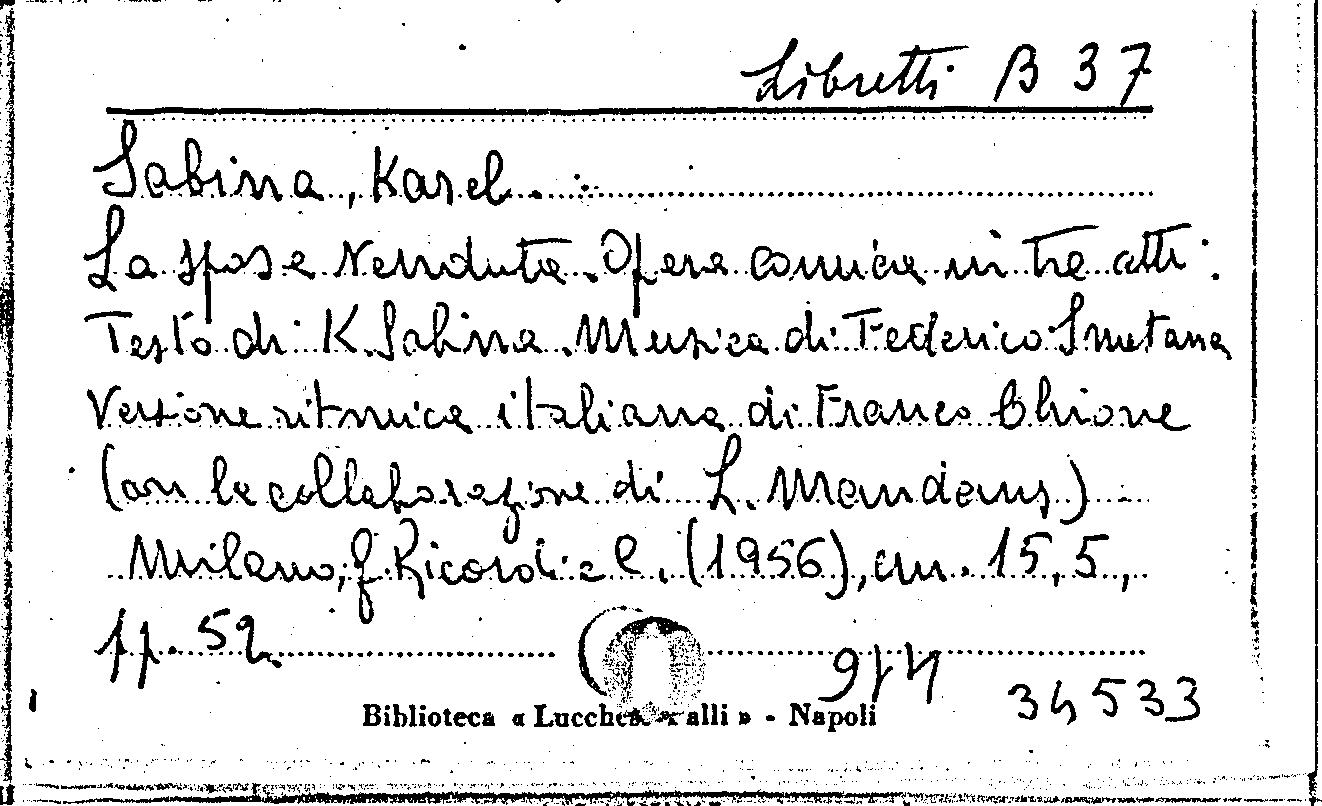 Libretti B 37
Sabina, Karel.
La sposa venduta. Opera comica in tre atti.
Testo di K. Sabina. Musica di Federico Smetana
Versione ritmica italiana di Franco Ghione
(con la collaborazione di L. Mandaus)
Milano, G. Ricordi e C. (1956), cm. 15,5,
pp. 52.
34533
Biblioteca « Lucchesi alli » - Napoli